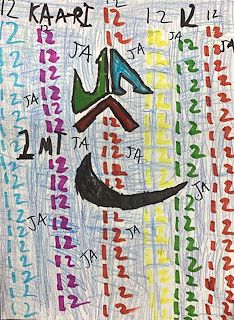 12 KAARI 12 12 12 12
12 12 12 12 12 12
JA JA
12 12 12 12 12
12 12 JA 12 12 12
12 12 12 12 12
JA 12 JA 12 12 12
12 12 12 12 12
12 12 12 12 12
MT JA JA 12 12 12
12 12 12 12 12
12 12 12 12 12
12 12 12 12 JA
12 12 12 12 12 12
12 12 12 12 12 12
JA JA
12 12 12 12 12 12
12 12 12 12 12 12
JA JA
12 12 12 12 12 12
12 12 12 12 12 12
12 12 12 12 12 12